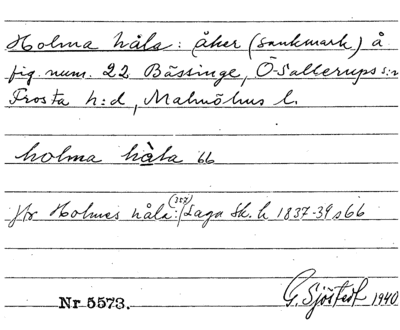 Holma håla: åker (sankmark) å
fig. num. 22 Bässinge, Ö-Sallerups s:n
Frosta h:d, Malmöhus l.
holma hàla 66
jfr Holmes håla: Laga Sk. h 1837-39 s 66
Nr 5573.
G. Sjöstedt 1940